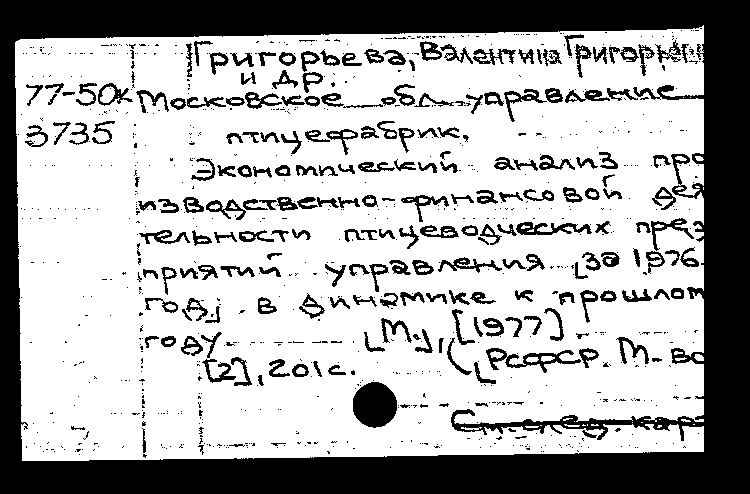 Григорьева, Валентина Григорьевн
и др.
77-50к Московское обл. управление
3735 птицефабрик.
Экономический анализ про
изводственно-финансовой дея
тельности птицеводческих пред
приятий управления [за 1976
год] в динамике к прошлом
году. [М.], [1977]
[2], 201 с. ([РСФСР. М-во
См. след. кар